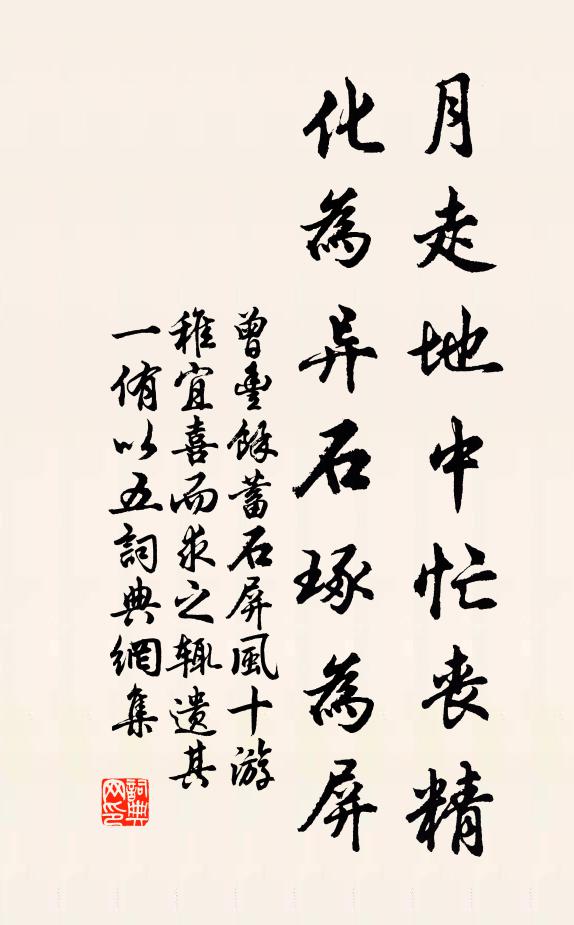 月走地中忙丧精
化為异石琢為屏
曾豊餘蓄石屏風十游
稚宜喜而求之辄遗其
一侑以五詞典網集
詞典
网印